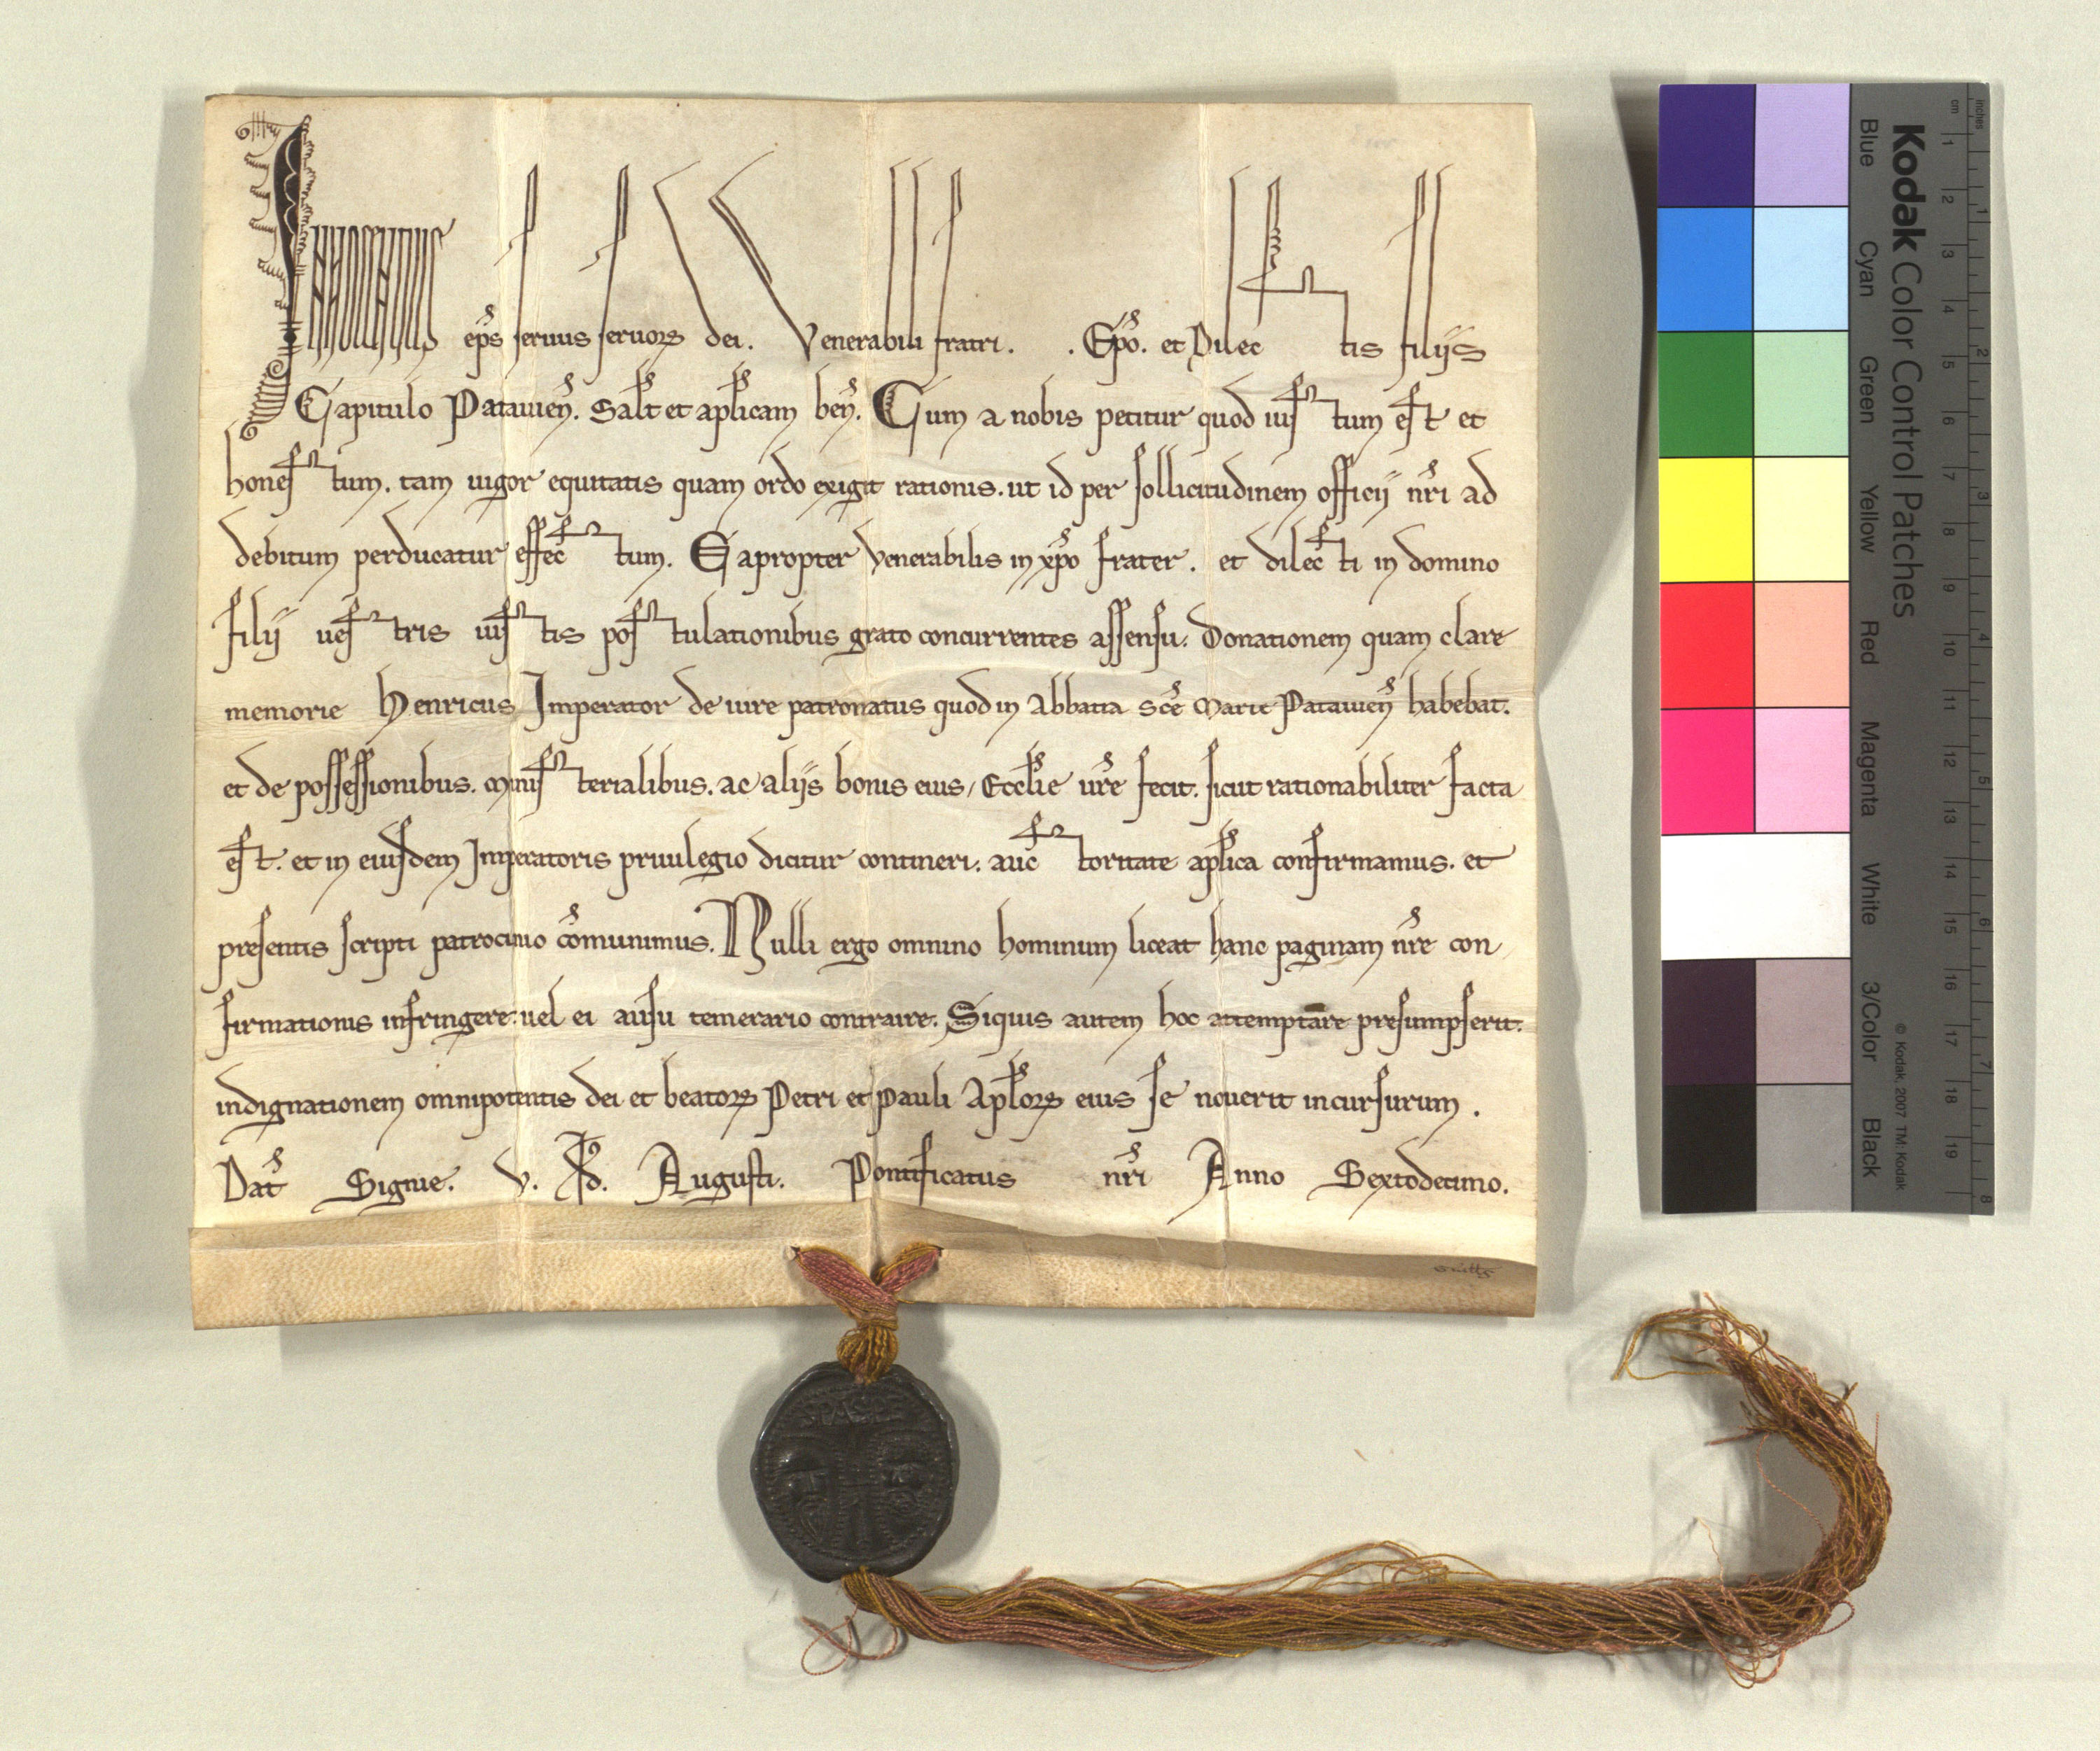 Innocentius ep̄s seruus seruoꝝ dei. Venerabili fratri . . Ep̄o. et Dilectis filijs
Capitulo Patauień. Salt̄ et ap̄licam beń. Cum a nobis petitur quod iustum est et
honestum. tam uigor equitatis quam ordo exigit rationis. ut id per sollicitudinem officij nr̄i ad
debitum perducatur effectum. Eapropter venerabilis in xp̄o frater. et dilecti in domino
filij uestris iustis postulationibus grato concurrentes assensu. Donationem quam clare
memorie Henricus Imperator de iure patronatus quod in Abbatia Sc̄e Marie Patauień habebat.
et de possessionibus. ministerialibus. ac alijs bonis eius, Eccl̄ie ur̄e fecit. sicut rationabiliter facta
est. et in eiusdem Imperatoris priuilegio dicitur contineri. auctoritate ap̄lica confirmamus. et
presentis scripti patrocinio cōmunimus. Nulli ergo omnino hominum liceat hanc paginam nr̄e con
firmationis infringere. uel ei ausu temerario contraire. Siquis autem hoc attemptare presumpserit.
indignationem omnipotentis dei et beatoꝝ Petri et Pauli Ap̄loꝝ eius se nouerit incursurum.
Dat̄ Signie. v. kł. Augusti. Pontificatus nr̄i Anno Sextodecimo.
SPASPE
Kodak Color Control Patches
Blue Cyan Green Yellow Red Magenta White 3/Color Black
© Kodak, 2007 TM: Kodak
cm 1 2 3 4 5 6 7 8 9 10 11 12 13 14 15 16 17 18 19
inches 1 2 3 4 5 6 7 8